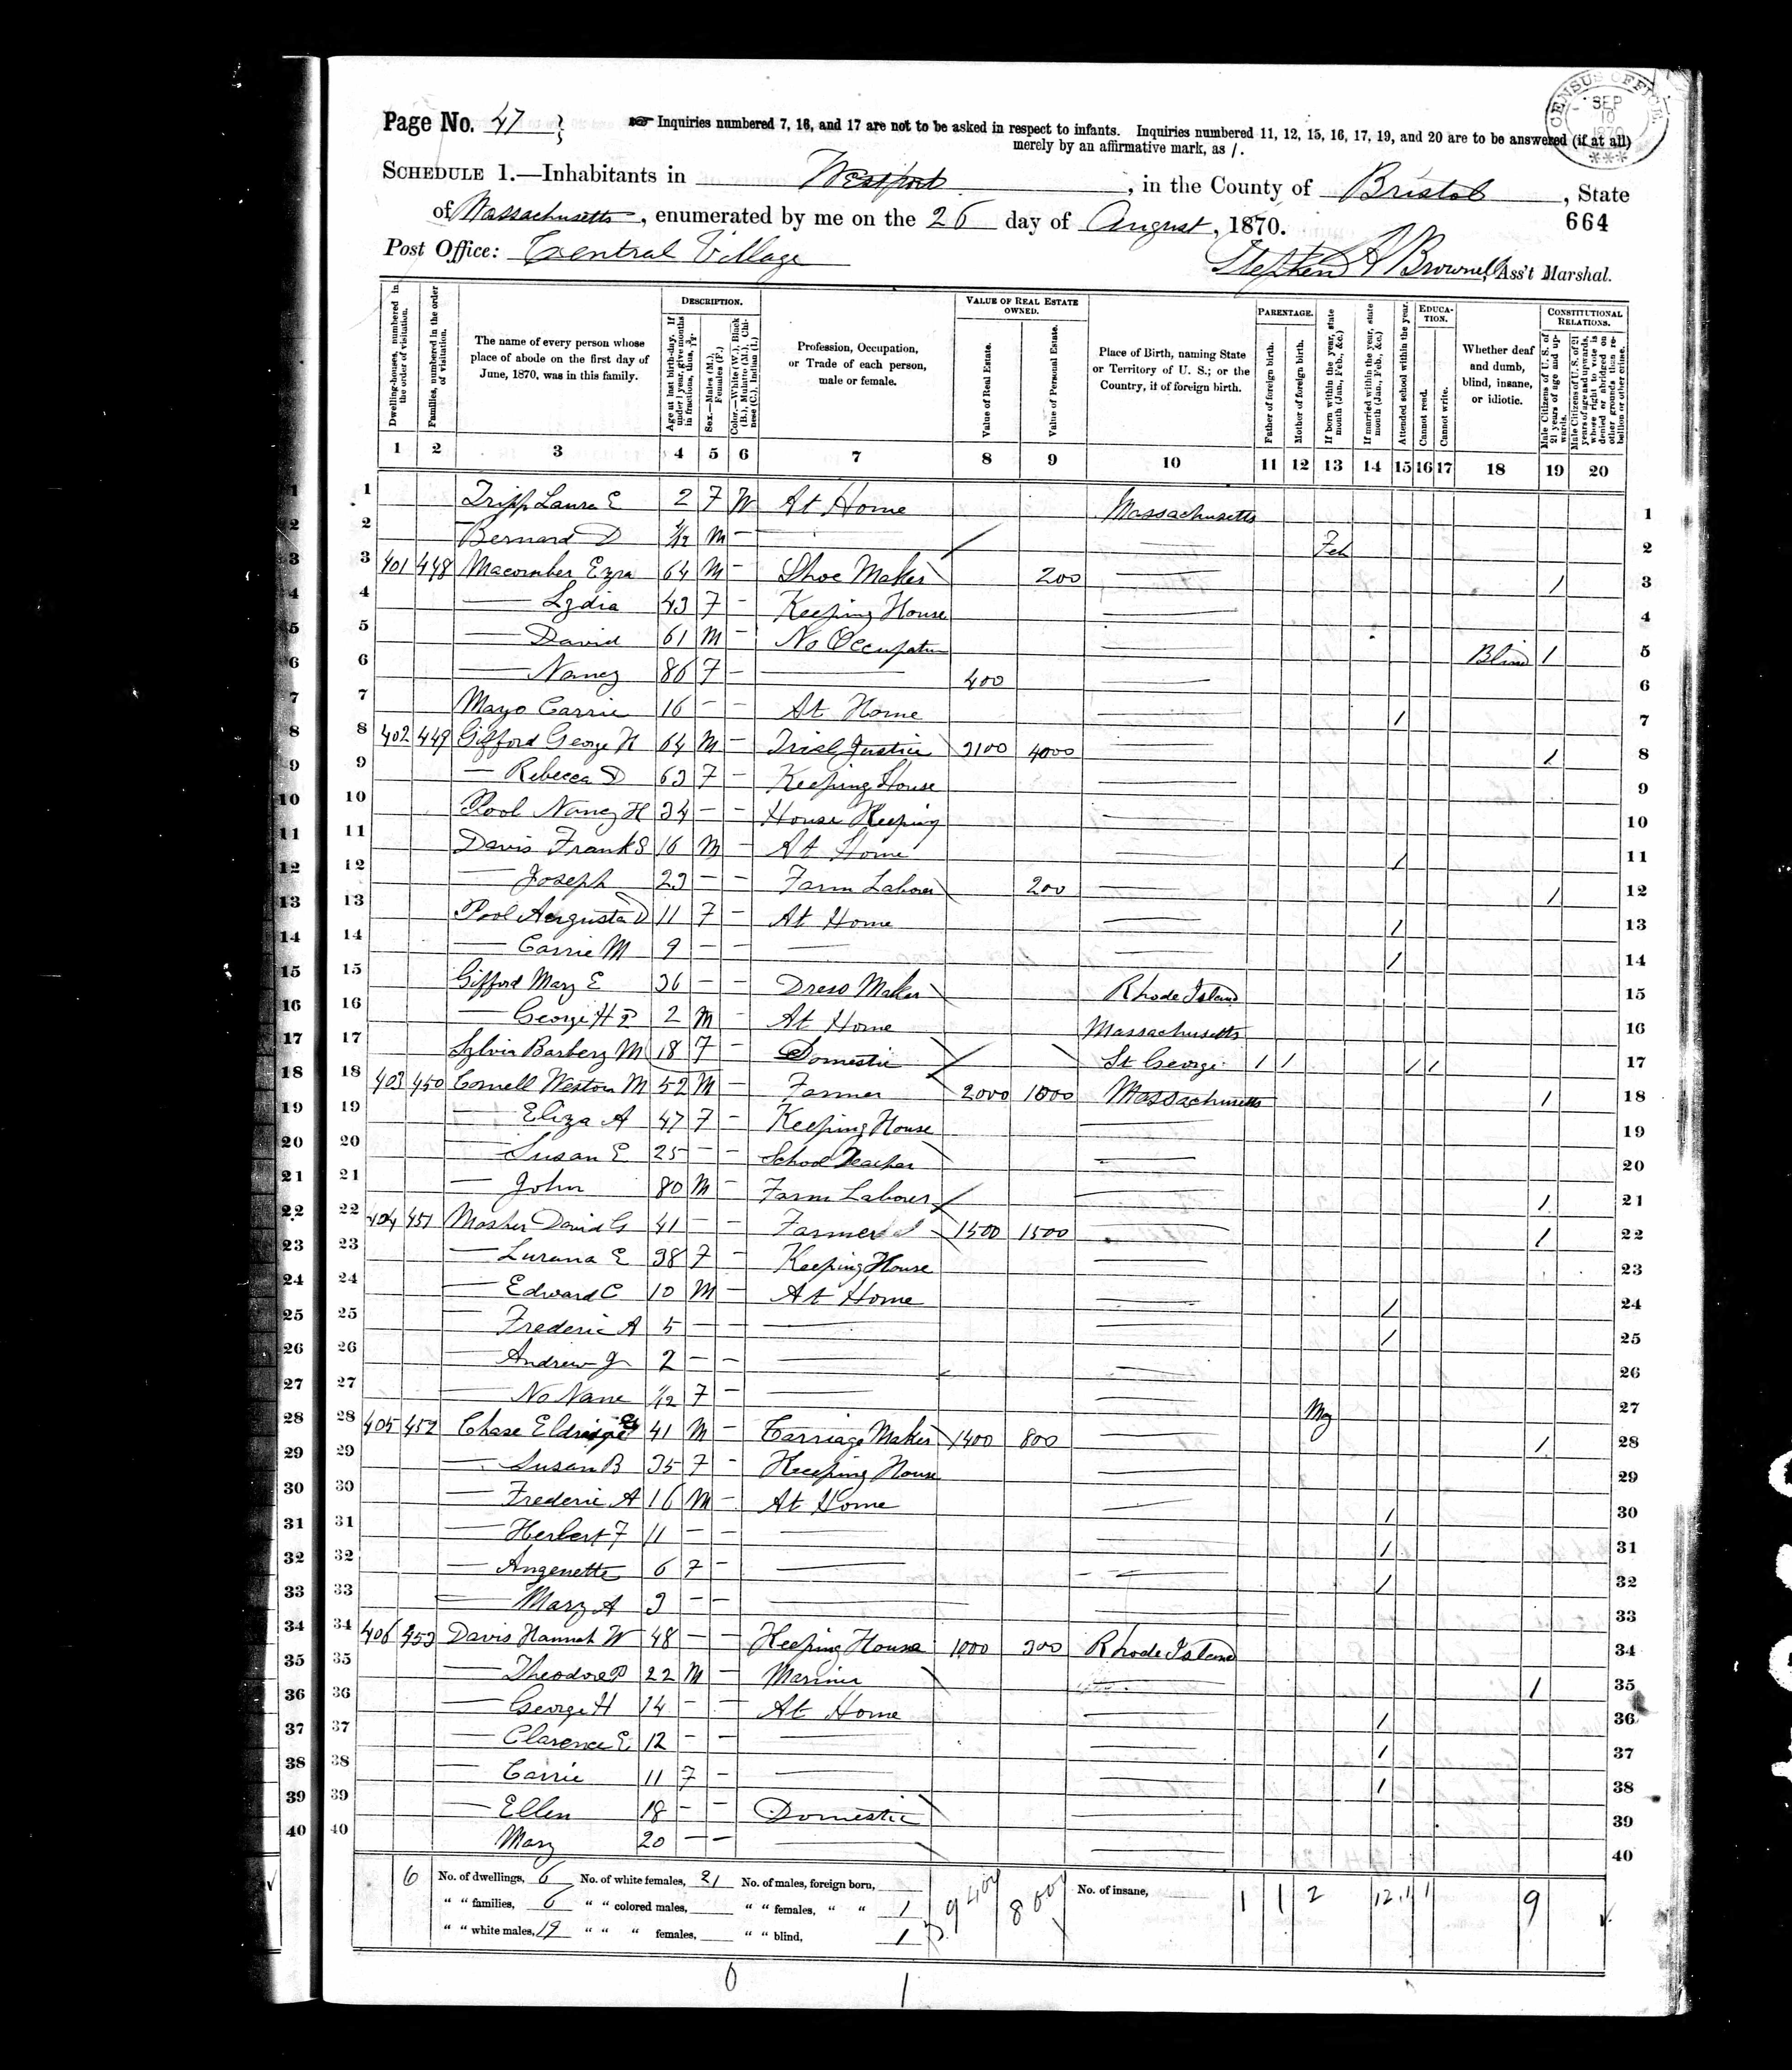 CENSUS OFFICE SEP 10 1870 ***
Page No. 47
Inquiries numbered 7, 16, and 17 are not to be asked in respect to infants. Inquiries numbered 11, 12, 15, 16, 17, 19, and 20 are to be answered (if at all)
merely by an affirmative mark, as /.
SCHEDULE 1.—Inhabitants in Westport, in the County of Bristol, State
of Massachusetts, enumerated by me on the 26 day of August, 1870. 664
Post Office: Central Village
Stephen A Brownell, Ass't Marshal.
Dwelling-houses, numbered in the order of visitation.
Families, numbered in the order of visitation.
The name of every person whose place of abode on the first day of June, 1870, was in this family.
DESCRIPTION.
Age at last birth-day. If under 1 year, give months in fractions, thus, 3/12.
Sex.—Males (M.), Females (F.)
Color.—White (W.), Black (B.), Mulatto (M.), Chinese (C.), Indian (I.)
Profession, Occupation, or Trade of each person, male or female.
VALUE OF REAL ESTATE OWNED.
Value of Real Estate.
Value of Personal Estate.
Place of Birth, naming State or Territory of U. S.; or the Country, if of foreign birth.
PARENTAGE.
Father of foreign birth.
Mother of foreign birth.
If born within the year, state month (Jan., Feb., &c.)
If married within the year, state month (Jan., Feb., &c.)
Attended school within the year.
EDUCATION.
Cannot read.
Cannot write.
Whether deaf and dumb, blind, insane, or idiotic.
CONSTITUTIONAL RELATIONS.
Male Citizens of U. S. of 21 years of age and upwards.
Male Citizens of U. S. of 21 years of age and upwards, where right to vote is denied or abridged on other grounds than rebellion or other crime.
1 2 3 4 5 6 7 8 9 10 11 12 13 14 15 16 17 18 19 20
1 Tripp Laura E 2 F W At Home Massachusetts 1
2 — Bernard D M — — — Feb 2
3 401 448 Macomber Ezra 64 M — Shoe Maker 200 — / 3
4 — Lydia 43 F — Keeping House — 4
5 — David 61 M — No Occupation — Blind / 5
6 — Nancy 86 F — — 400 — 6
7 Mayo Carrie 16 — — At Home — / 7
8 402 449 Gifford George H 64 M — Trial Justice 3100 4000 — / 8
9 — Rebecca D 63 F — Keeping House — 9
10 Pool Nancy H 34 — — House Keeping — 10
11 Davis Frank S 16 M — At Home — / 11
12 — Joseph 23 — — Farm Laborer 200 — / 12
13 Pool Augusta D 11 F — At Home — / 13
14 — Carrie M 9 — — — — / 14
15 Gifford Mary E 36 — — Dress Maker Rhode Island 15
16 — George H P 2 M — At Home Massachusetts 16
17 Sylvia Barbery M 18 F — Domestic St George / / / / 17
18 403 450 Cornell Weston M 52 M — Farmer 2000 1000 Massachusetts / 18
19 — Eliza A 47 F — Keeping House — 19
20 — Susan E 25 — — School Teacher — 20
21 — John 80 M — Farm Laborer — / 21
22 404 451 Mosher David G 41 — — Farmer 1500 1500 — / 22
23 — Lurana E 38 F — Keeping House — 23
24 — Edward C 10 M — At Home — / 24
25 — Frederic A 5 — — — — / 25
26 — Andrew J 2 — — — — 26
27 — No Name 1/12 F — — — My 27
28 405 452 Chase 41 M — Carriage Maker 1400 800 — / 28
29 — Susan B 35 F — Keeping House — 29
30 — Frederic A 16 M — At Home — / 30
31 — Herbert F 11 — — — — / 31
32 — Angenette 6 F — — — / 32
33 — Mary A 3 — — — — 33
34 406 453 Davis Hannah W 48 — — Keeping House 1000 300 Rhode Island 34
35 — Theodore P 22 M — Mariner — / 35
36 — George H 14 — — At Home — / 36
37 — Clarence E 12 — — — — / 37
38 — Carrie 11 F — — — / 38
39 — Ellen 18 — — Domestic — 39
40 Mary 20 — — — — 40
6 No. of dwellings, 6 No. of white females, 21 No. of males, foreign born, No. of insane, 1 1 2 12 1 1 9
" " families, 6 " " colored males, " " females, " " 1 9400 8000
" " white males, 19 " " " females, " " blind, 1